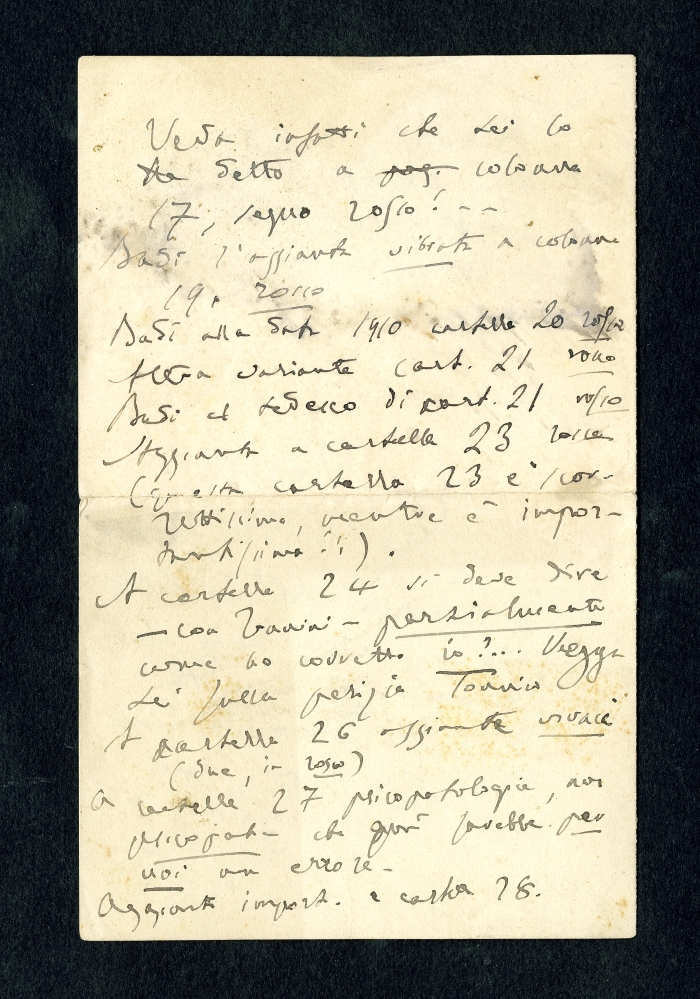 Veda infatti che Lei lo
ha detto a pag. colonna
17, segno rosso! --
Badi l'aggiunta vibrata a colonna
19. rosso
Badi alla data 1910 cartella 20 rosso
Altra variante cart. 21 rosso
Badi al tedesco di cart. 21 rosso
Aggiunta a cartella 23 rosso
(Questa cartella 23 è scor-
rettissima, mentre è impor-
tantissima!!).
A cartella 24 si deve dire
— con – parzialmente
come ho corretto io?... Vegga
Lei sulla perizia
A cartella 26 aggiunte vivaci
(due, in rosso)
A cartella 27 psicopatologia, non
psicopatia che però sarebbe per
noi un errore.
Aggiunta import. a cartella 28.